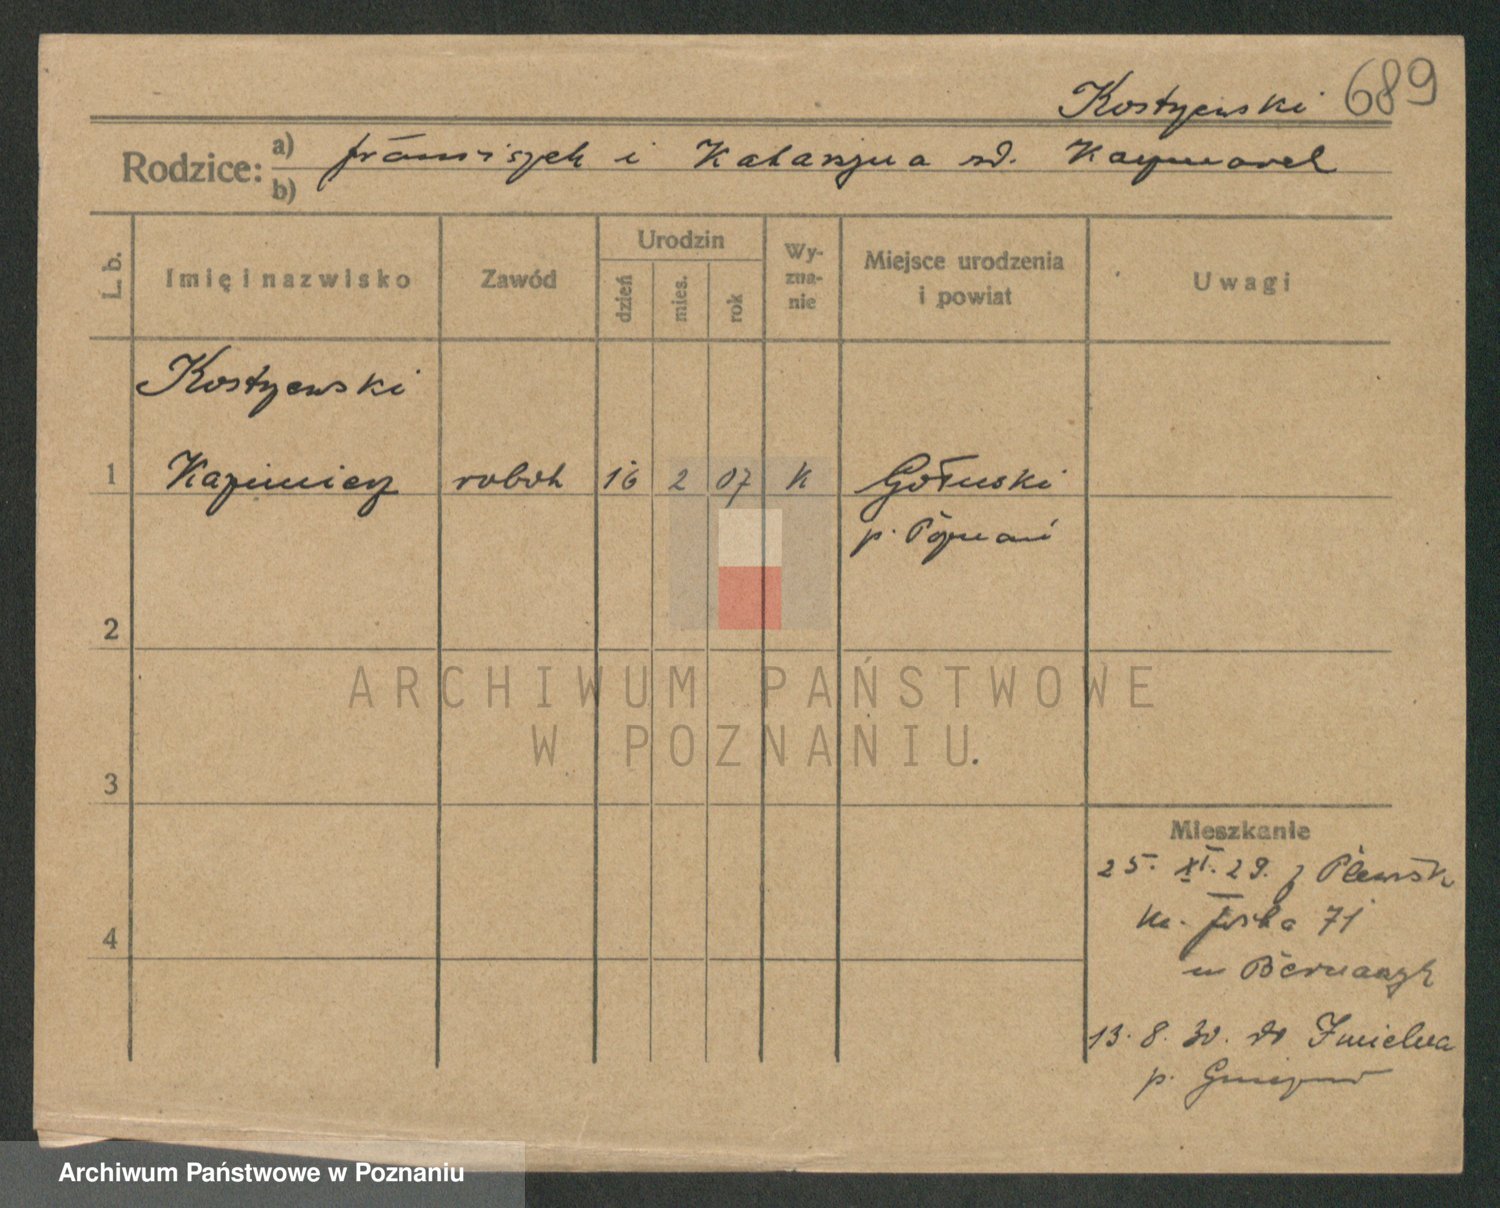 Kostrzewski 689
Rodzice: a) b) Franciszek i Katarzyna zd. Kaczmarek
L. b.
Imię i nazwisko
Zawód
Urodzin
dzień
mies.
rok
Wy-
zna-
nie
Miejsce urodzenia
i powiat
Uwagi
Kostrzewski
1 Kazimierz robotn 16 2 07 K Gołuski
p. Poznań
2
ARCHIWUM PAŃSTWOWE
W POZNANIU
3
Mieszkanie
25. XI. 29. z
71
4
u
13. 8. 30. do Imielna
p. Gniezno
Archiwum Państwowe w Poznaniu